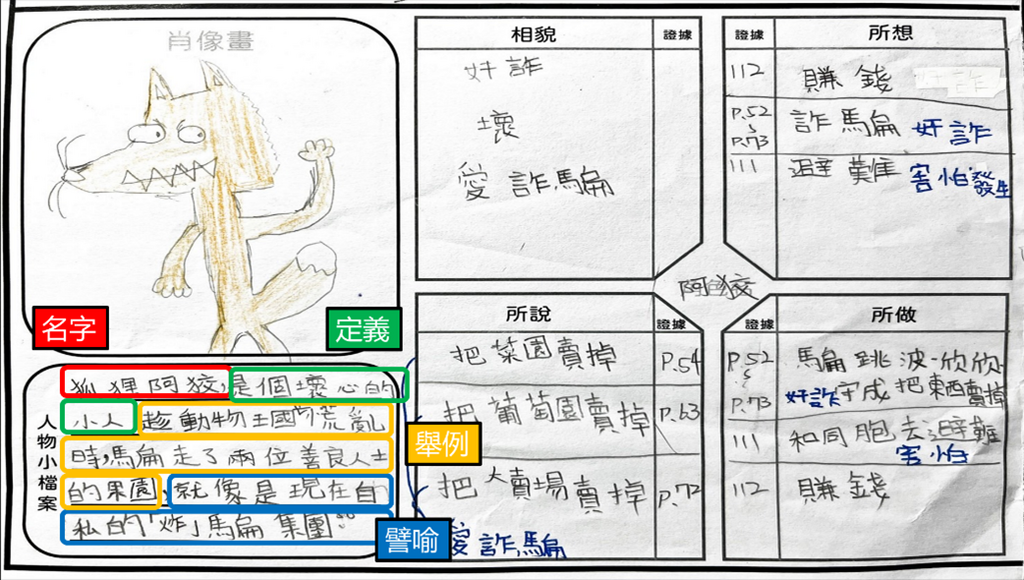 肖像畫
名字
定義
人物小檔案
狐狸阿狡,是個壞心的
小人 趁動物王國荒亂
時,騙走了兩位善良人士
的果園,就像是現在自
私的「炸」騙集團
舉例
譬喻
相貌 證據
奸詐
壞
愛詐騙
證據 所想
112 賺錢
P.52 ~ P.73 詐騙 奸詐
111 避難 害怕發生
阿狡
所說 證據
把菜園賣掉 P.54
把葡萄園賣掉 P.63
把大賣場賣掉 P.72
愛詐騙
證據 所做
P.52 ~ P.73 騙跳波、欣欣、
奸詐 守成把東西賣掉
111 和同胞去避難
害怕
112 賺錢